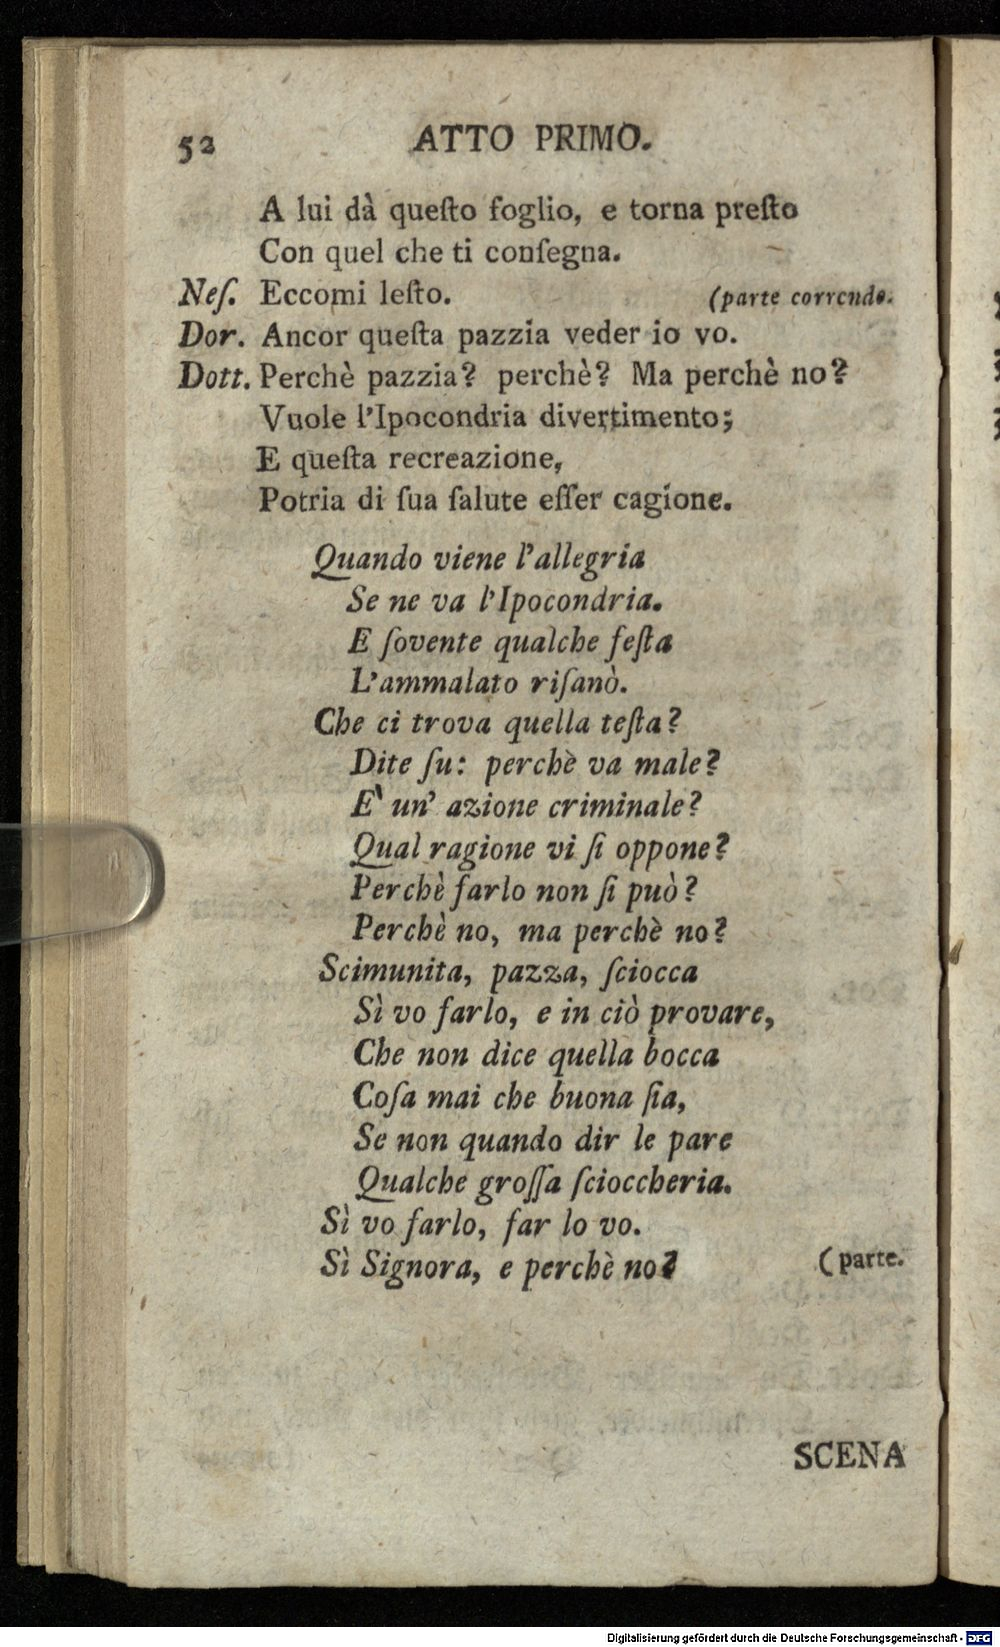 52 ATTO PRIMO.
A lui dà queſto foglio, e torna preſto
Con quel che ti conſegna.
Neſ. Eccomi leſto. (parte correndo.
Dor. Ancor queſta pazzia veder io vo.
Dott. Perchè pazzia? perchè? Ma perchè no?
Vuole l'Ipocondria divertimento;
E queſta recreazione,
Potria di ſua ſalute eſſer cagione.
Quando viene l'allegria
Se ne va l'Ipocondria.
E ſovente qualche feſta
L'ammalato riſanò.
Che ci trova quella teſta?
Dite ſu: perchè va male?
E` un' azione criminale?
Qual ragione vi ſi oppone?
Perchè farlo non ſi può?
Perchè no, ma perchè no?
Scimunita, pazza, ſciocca
Sì vo farlo, e in ciò provare,
Che non dice quella bocca
Coſa mai che buona ſia,
Se non quando dir le pare
Qualche groſſa ſcioccheria.
Sì vo farlo, far lo vo.
Sì Signora, e perchè no? (parte.
SCENA
Digitalisierung gefördert durch die Deutsche Forschungsgemeinschaft - DFG